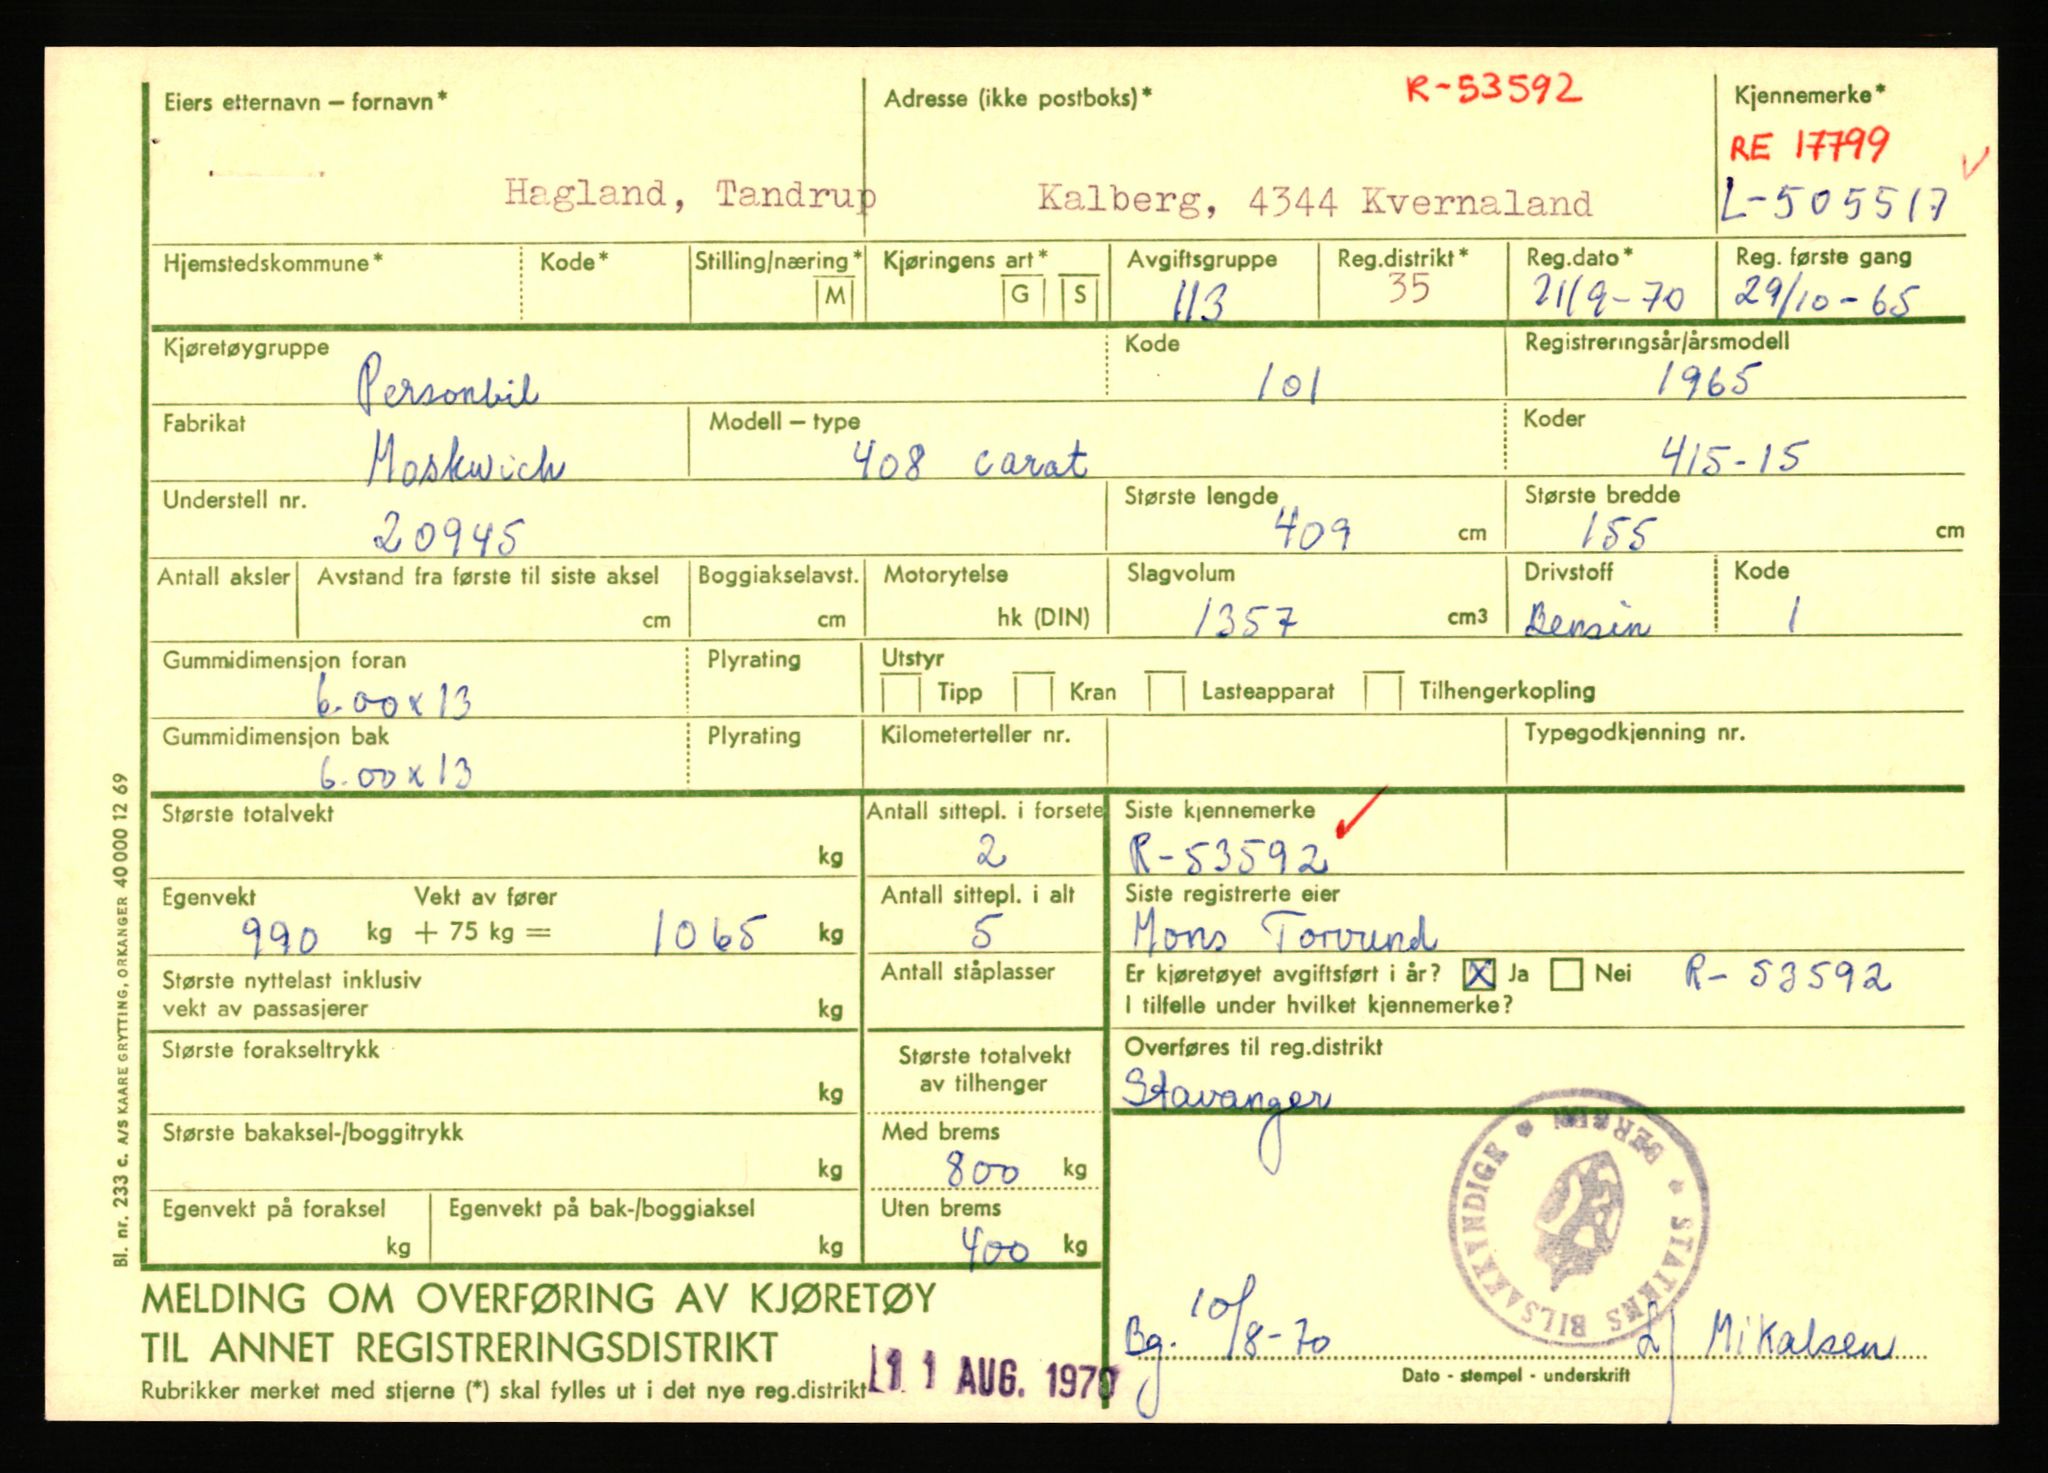 Eiers etternavn – fornavn* Adresse (ikke postboks)* R-53592 Kjennemerke*
RE 17799
Hagland, Tandrup Kalberg, 4344 Kvernaland L-505517
Hjemstedskommune* Kode* Stilling/næring* Kjøringens art* Avgiftsgruppe Reg.distrikt* Reg.dato* Reg. første gang
M G S 113 35 21/9-70 29/10-65
Kjøretøygruppe Kode Registreringsår/årsmodell
Personbil 101 1965
Fabrikat Modell – type Koder
Moskwich 408 carat 415-15
Understell nr. Største lengde Største bredde
20945 409 cm 155 cm
Antall aksler Avstand fra første til siste aksel Boggiakselavst. Motorytelse Slagvolum Drivstoff Kode
cm cm hk (DIN) 1357 cm3 Bensin 1
Gummidimensjon foran Plyrating Utstyr
6.00x13 Tipp Kran Lasteapparat Tilhengerkopling
Gummidimensjon bak Plyrating Kilometerteller nr. Typegodkjenning nr.
6.00x13
Største totalvekt Antall sittepl. i forsete Siste kjennemerke
kg 2 R-53592
Egenvekt Vekt av fører Antall sittepl. i alt Siste registrerte eier
990 kg + 75 kg = 1065 kg 5 Mons Torvund
Største nyttelast inklusiv Antall ståplasser Er kjøretøyet avgiftsført i år? X Ja Nei R-53592
vekt av passasjerer kg I tilfelle under hvilket kjennemerke?
Største forakseltrykk Største totalvekt Overføres til reg.distrikt
kg av tilhenger Stavanger
Største bakaksel-/boggitrykk Med brems
kg 800 kg
Egenvekt på foraksel Egenvekt på bak-/boggiaksel Uten brems
kg kg 400 kg
STATENS BILSAKKYNDIGE * BERGEN *
MELDING OM OVERFØRING AV KJØRETØY
TIL ANNET REGISTRERINGSDISTRIKT
Bg. 10/8-70 Mikalsen
Rubrikker merket med stjerne (*) skal fylles ut i det nye reg.distrikt 11 AUG. 1970 Dato - stempel - underskrift
Bl. nr. 233 c. A/S KAARE GRYTTING, ORKANGER 40 000 12 69